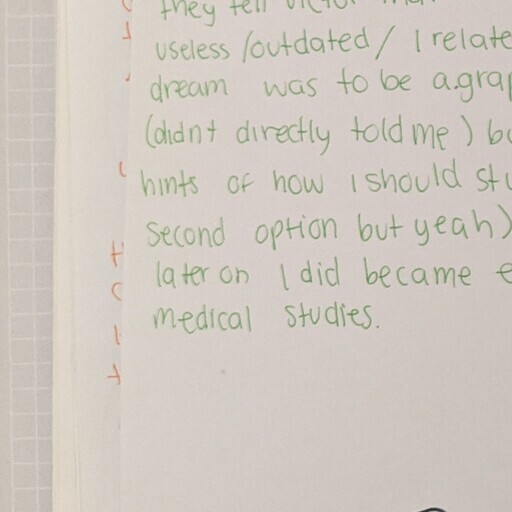 they tell
useless/outdated/ I relate
dream was to be a.grap
(didn't directly told me) bu
hints of how I should stu
second option but yeah)
later on I did became e
medical studies.